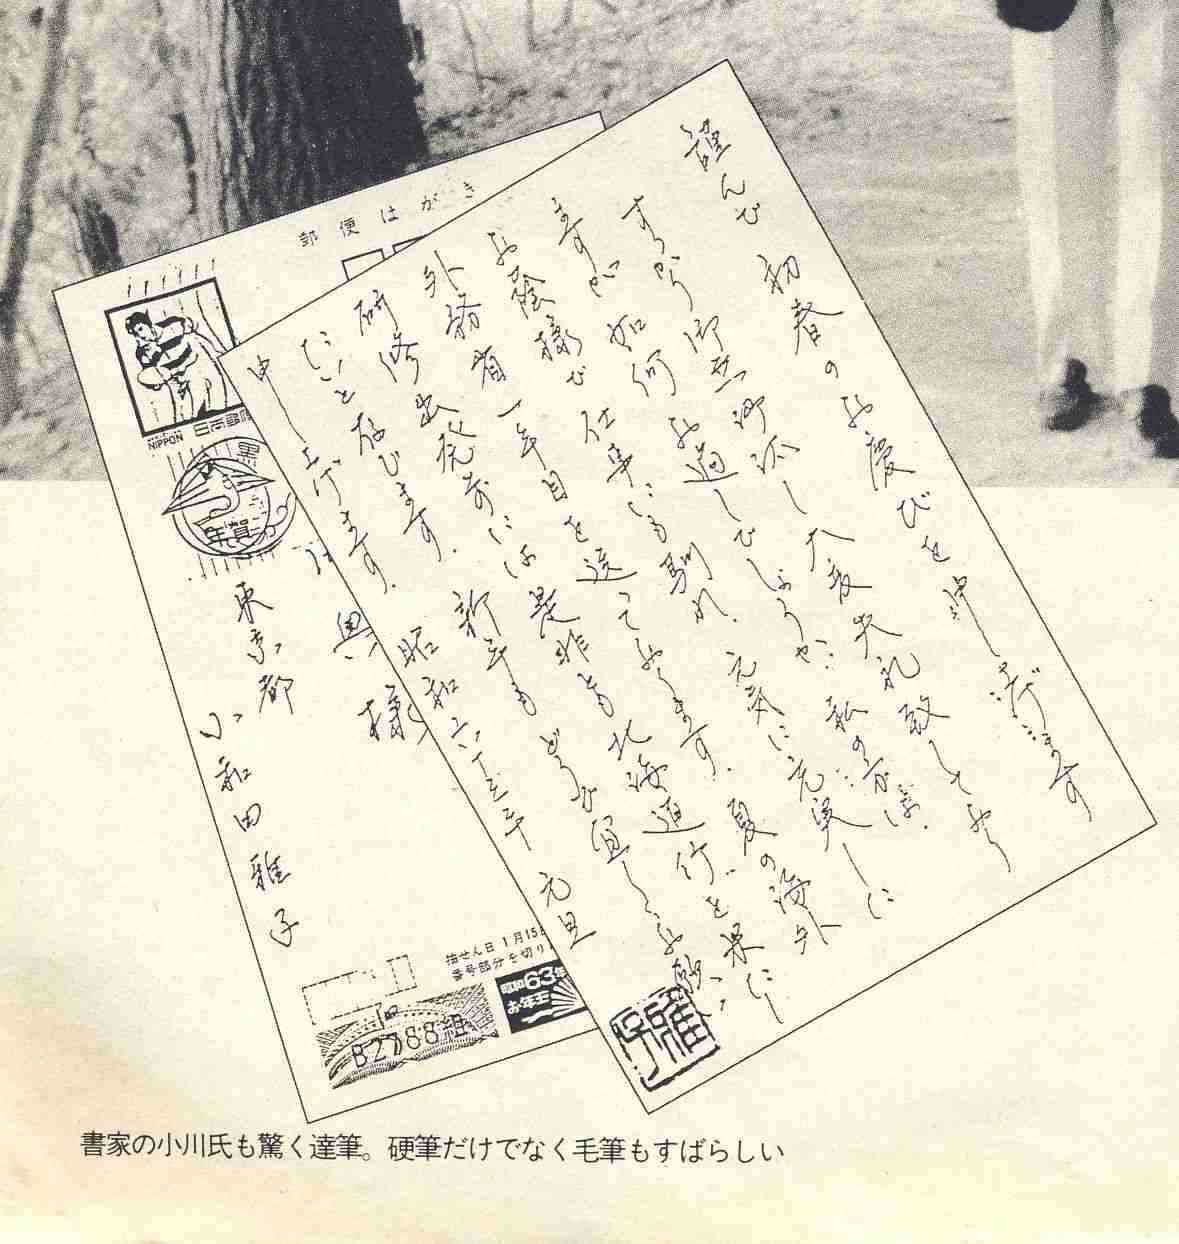 謹んで初春のお慶びを申し上げます
すっかり御無沙汰し大変失礼致しており
ますが如何お過しでしょうか。私の方は、
お蔭様で仕事にも馴れ、元気に充実した
外務省一年目を送っております。夏の海外
研修出発前には是非とも北海道行を果し
たいと存じます。新年もどうぞ宜しくお願い
申し上げます。
昭和六十三年 元旦
雅子
郵便はがき
NIPPON
日本郵便
年賀
様
東京都
小和田雅子
抽せん日 1月15
番号部分を切り
昭和63年
お年玉
B2788組
書家の小川氏も驚く達筆。硬筆だけでなく毛筆もすばらしい